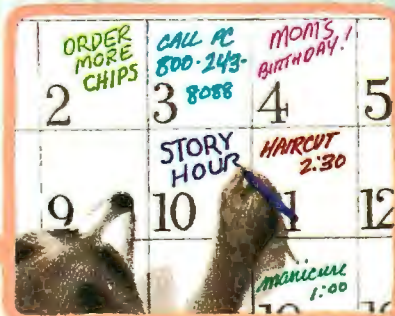 ORDER
MORE
CHIPS
2
CALL PC
800-243-
8088
3
MOM'S
BIRTHDAY!
4
5
9
STORY
HOUR
10
HAIRCUT
2:30
12
manicure
1:00